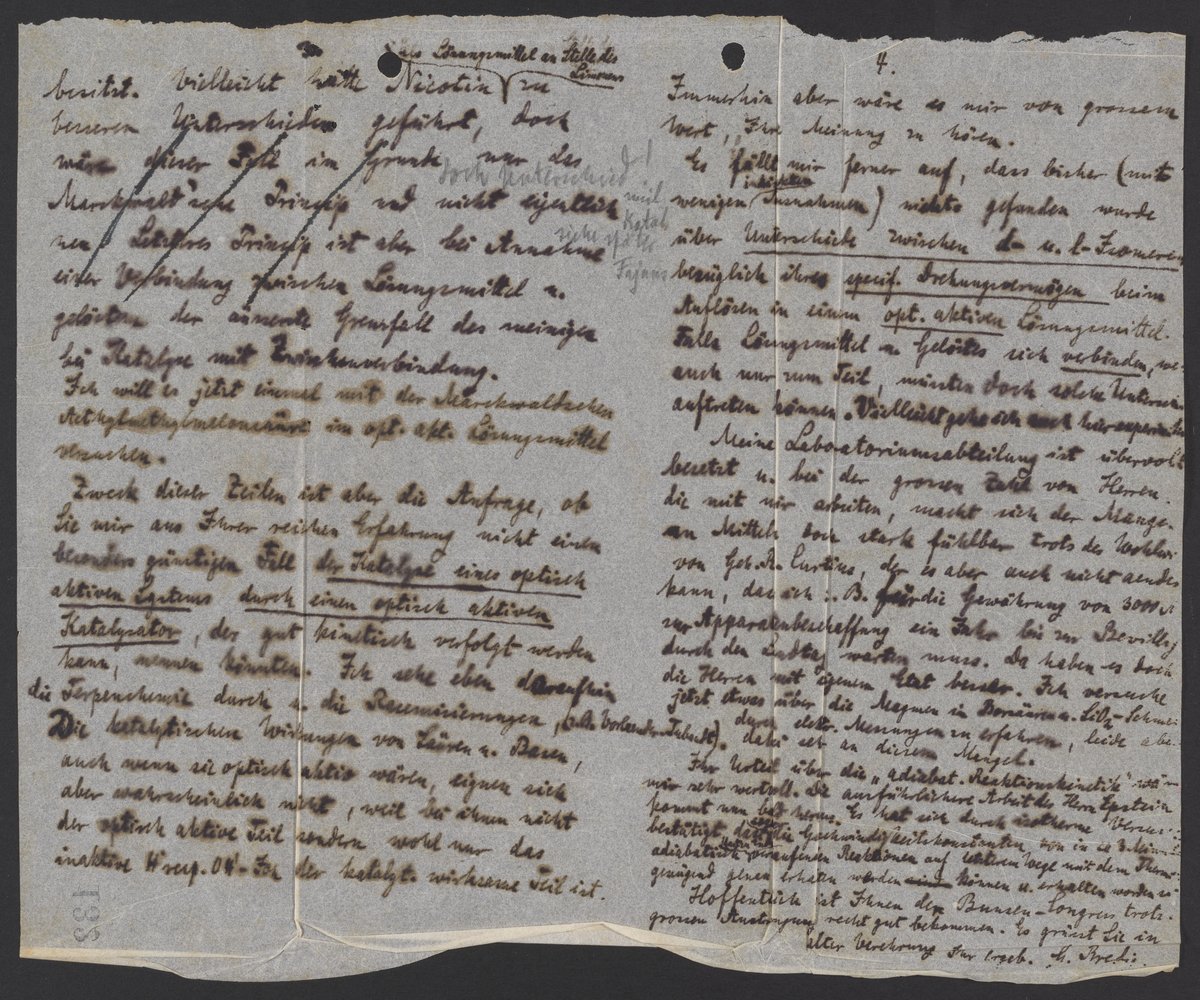 3.
als Lösungsmittel an Stelle des
Limonens
besitzt. Vielleicht hätte Nicotin zu
besseren Unterschieden geführt, doch
wäre dieser Fall im Grunde nur das
Marckwald'sche Prinzip und nicht eigentlich
neu. Letzteres Prinzip ist aber bei Annahme
einer Verbindung zwischen Lösungsmittel u.
gelöstem der äusserste Grenzfall des meinigen
bei Katalyse mit Zwischenverbindung.
doch Unterschied!
siehe
Katal
Fajans
Ich will es jetzt einmal mit der Marckwaldschen
Aethylmethylmalonsäure im opt. akt. Lösungsmittel
versuchen.
Zweck dieser Zeilen ist aber die Anfrage, ob
Sie mir aus Ihrer reichen Erfahrung nicht einen
besonders günstigen Fall der Katalyse eines optisch
aktiven Systems durch einen optisch aktiven
Katalysator, der gut kinetisch verfolgt werden
kann, nennen könnten. Ich sehe eben daraufhin
die Terpenchemie durch u. die Racemisierungen,
Die katalytischen Wirkungen von Säuren u. Basen,
auch wenn sie optisch aktiv wären, eignen sich
aber wahrscheinlich nicht, weil bei ihnen nicht
der optisch aktive Teil sondern wohl nur das
inaktive H resp. OH-Ion der katalyt. wirksame Teil ist.
133
4.
Immerhin aber wäre es mir von grossem
Wert, Ihre Meinung zu hören.
Es fällt mir ferner auf, dass bisher (mit
wenigen Ausnahmen) nichts gefunden wurde
über Unterschiede zwischen d- u. l-Isomeren
bezüglich ihres specif. Drehungsvermögen beim
Auflösen in einem opt. aktiven Lösungsmittel.
Falls Lösungsmittel u. Gelöstes sich verbinden,
auch nur zum Teil, müssten doch solche Untersch
auftreten können. Vielleicht gehe ich auch hier
Meine Laboratoriumsabteilung ist übervoll
besetzt u. bei der grossen Zahl von Herren,
die mit mir arbeiten, macht sich der Mange
an Mitteln doch stark fühlbar trotz des Wohlwo
von Geh. R. Curtius, der es aber auch nicht aendern
kann, dass ich z. B. für die Gewährung von 3000 M
zur Apparatenbeschaffung ein Jahr bis zur Bewillig
durch den Landtag warten muss. Da haben es doch
die Herren mit eigenem Etat besser. Ich versuche
jetzt etwas über die Magmen in Borsäure u.
durch elektr. Messungen zu erfahren, leide aber
dabei sehr an diesem Mangel.
Ihr Urteil über die „adiabat. Reaktionskinetik" wäre
mir sehr wertvoll. Die ausführlichere Arbeit des Herrn Epstein
kommt nun bald heraus. Es hat sich durch isotherme Versu
bestätigt, dass die Geschwindigkeitskonstanten, von in ca 3
adiabatisch verlaufenden Reaktionen auf letzterem Wege mit dem Therm
genügend genau erhalten werden können u. erhalten worden si
Hoffentlich ist Ihnen der Bunsen-Congress trotz
grossen Anstrengung recht gut bekommen. Es grüsst Sie in
alter Verehrung Ihr ergeb. G. Bredig.